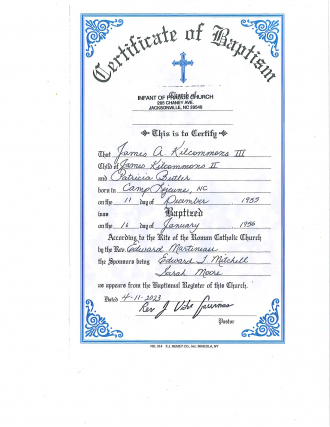 Certificate of Baptism
Church of
INFANT OF PRAGUE CHURCH
205 CHANEY AVE.
JACKSONVILLE, NC 28540
This is to Certify
That James A Kilcommons III
Child of James Kilcommons II
and Patricia Butler
born in Camp Lejeune, NC
on the 11 day of December 1955
was Baptized
on the 16 day of January 1956
According to the Rite of the Roman Catholic Church
by the Rev. Edward Martineau
the Sponsors being Edward J Mitchell
Sarah Moore
as appears from the Baptismal Register of this Church.
Dated 4-11-2023
Rev. J
Pastor
NO. 314 F.J. REMEY CO., Inc. MINEOLA, NY